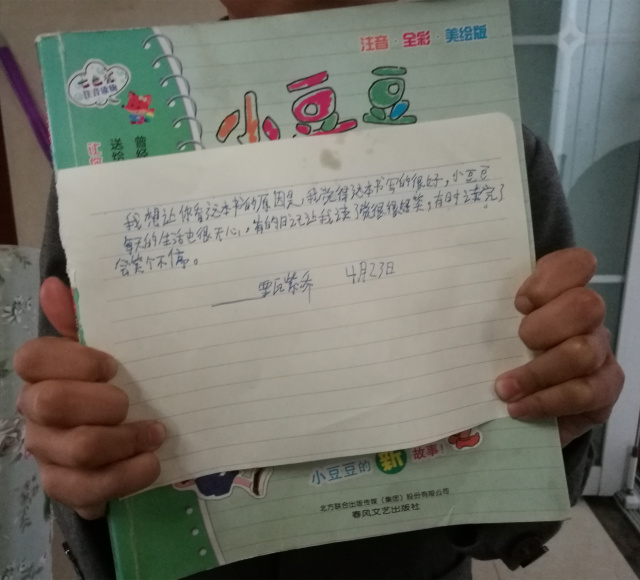 注音·全彩·美绘版
七色花
小豆豆
我想让你看这本书的原因是,我觉得这本书写的很好,小豆豆
每天的生活也很开心,有的日记让我读了觉得很好笑,有时读完了
会笑个不停。
4月23日
小豆豆的新故事!
北方联合出版传媒(集团)股份有限公司
春风文艺出版社